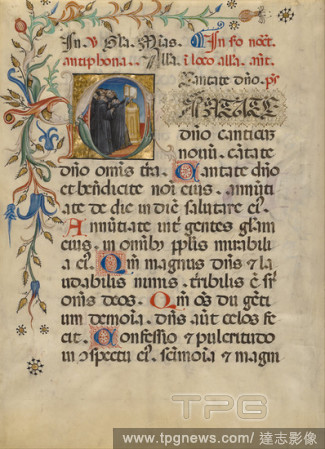 In
antiphona. Alla. i loco alla. ant.
Cantate dno. ps
ANTATE
dno canticum
nouum. cantate
dno omis tra. Cantate dno
et benedicite
ate de die in diem salutare ei.
Annutiate int gentes gliam
eius. in omnib pplis mirabilia
ei. Qm magnus dns & laudabilis
nimis. tribilis e
omis deos. Qm os du gentium
demonia. dns aut celos fecit.
Confessio & pulcritudo
in ospectu ei. scimonia & magni
TPG
www.tpgnews.com / 達志影像